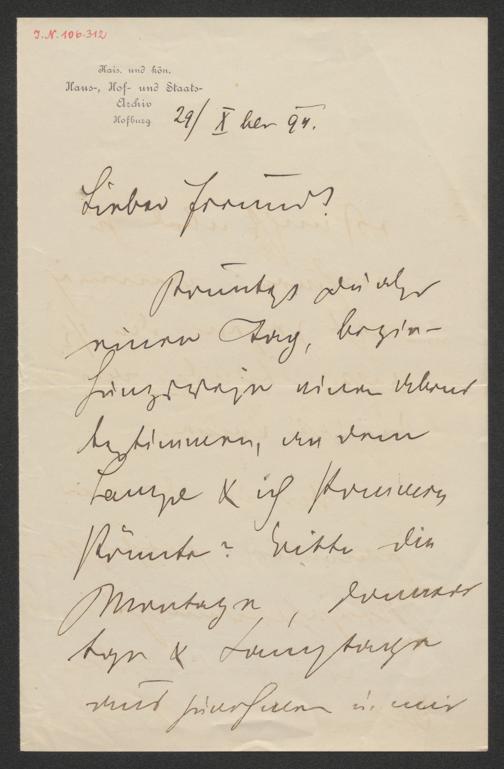 I.N. 106.312
Kais. und kön.
Haus-, Hof- und Staats-
Archiv
Hofburg
29/Xber 94.
Lieber Freund!
Könntest du also
einen Tag, bezie-
hungsweise einen Abend
bestimmen, an dem
Lampe & ich kommen
könnte? Bitte die
Montage, Donners
tage & Samstage
auszunehmen u. mir